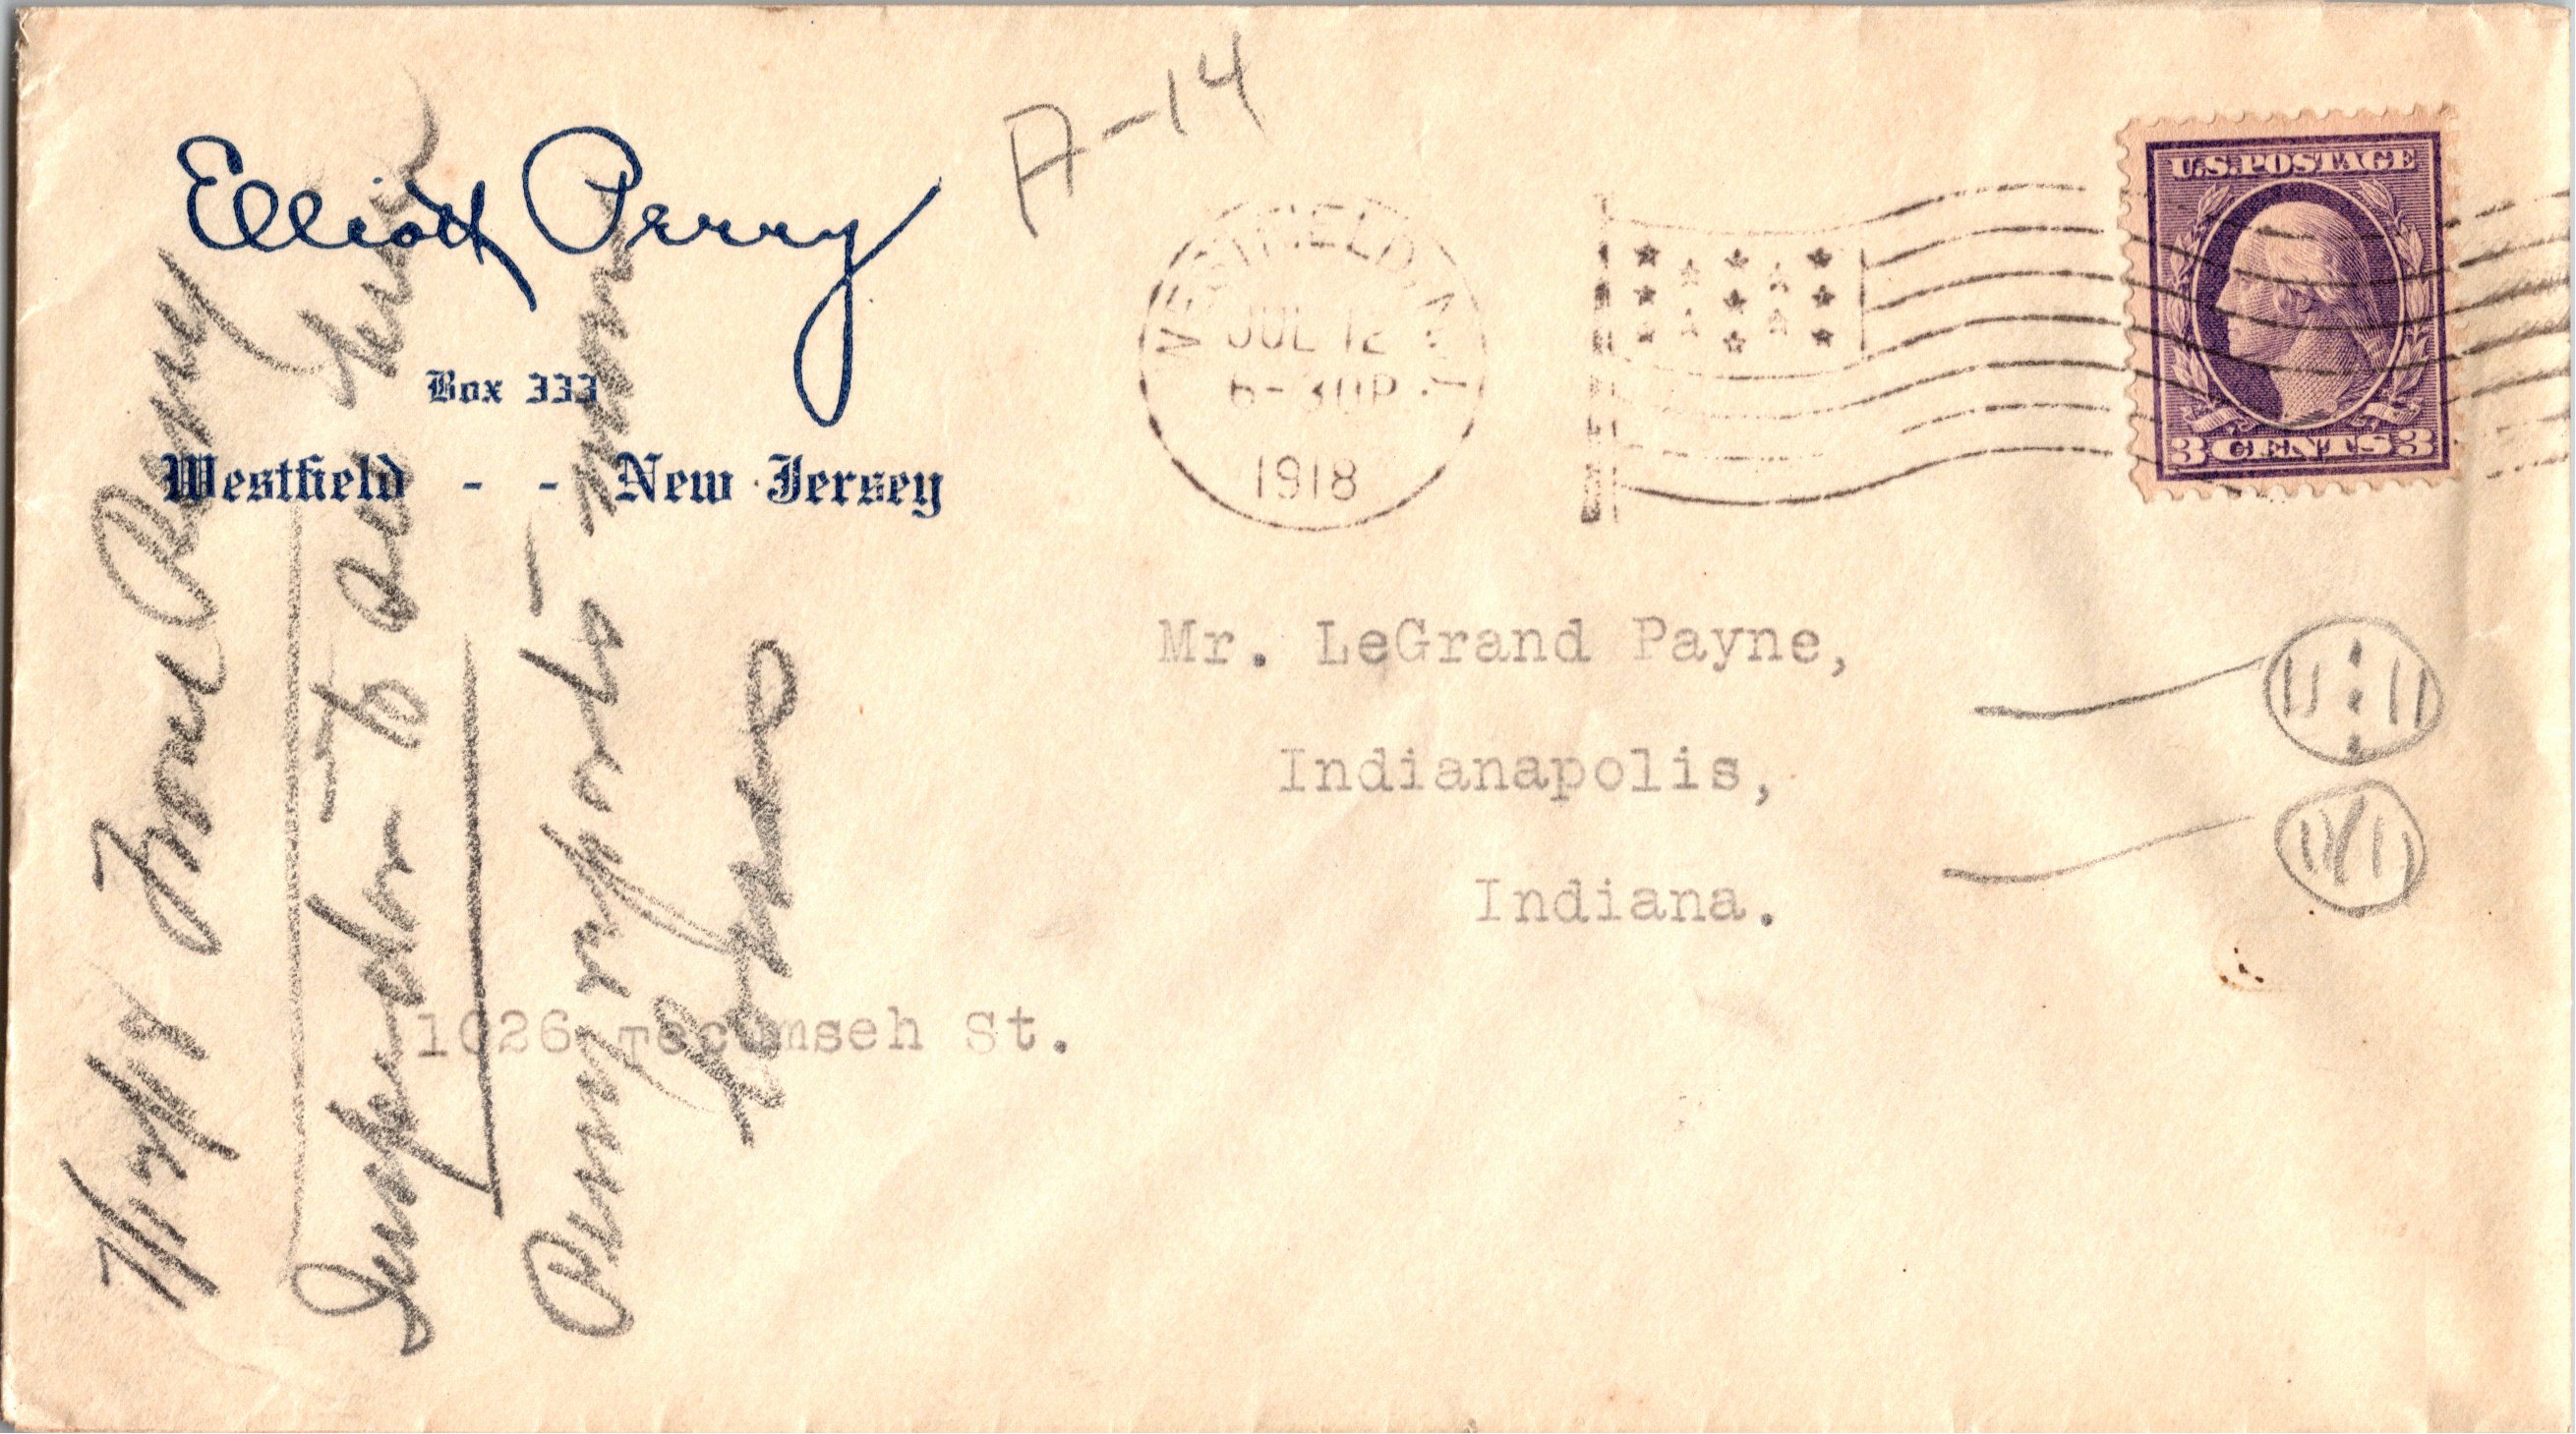 Elliott Perry
Box 333
Westfield - - New Jersey
A-14
WESTFIELD N.J.
JUL 12
6-30P
1918
U.S.POSTAGE
3 CENTS 3
Mr. LeGrand Payne,
Indianapolis,
Indiana.
1026 Tecumseh St.
From Perry
to
Perry reports